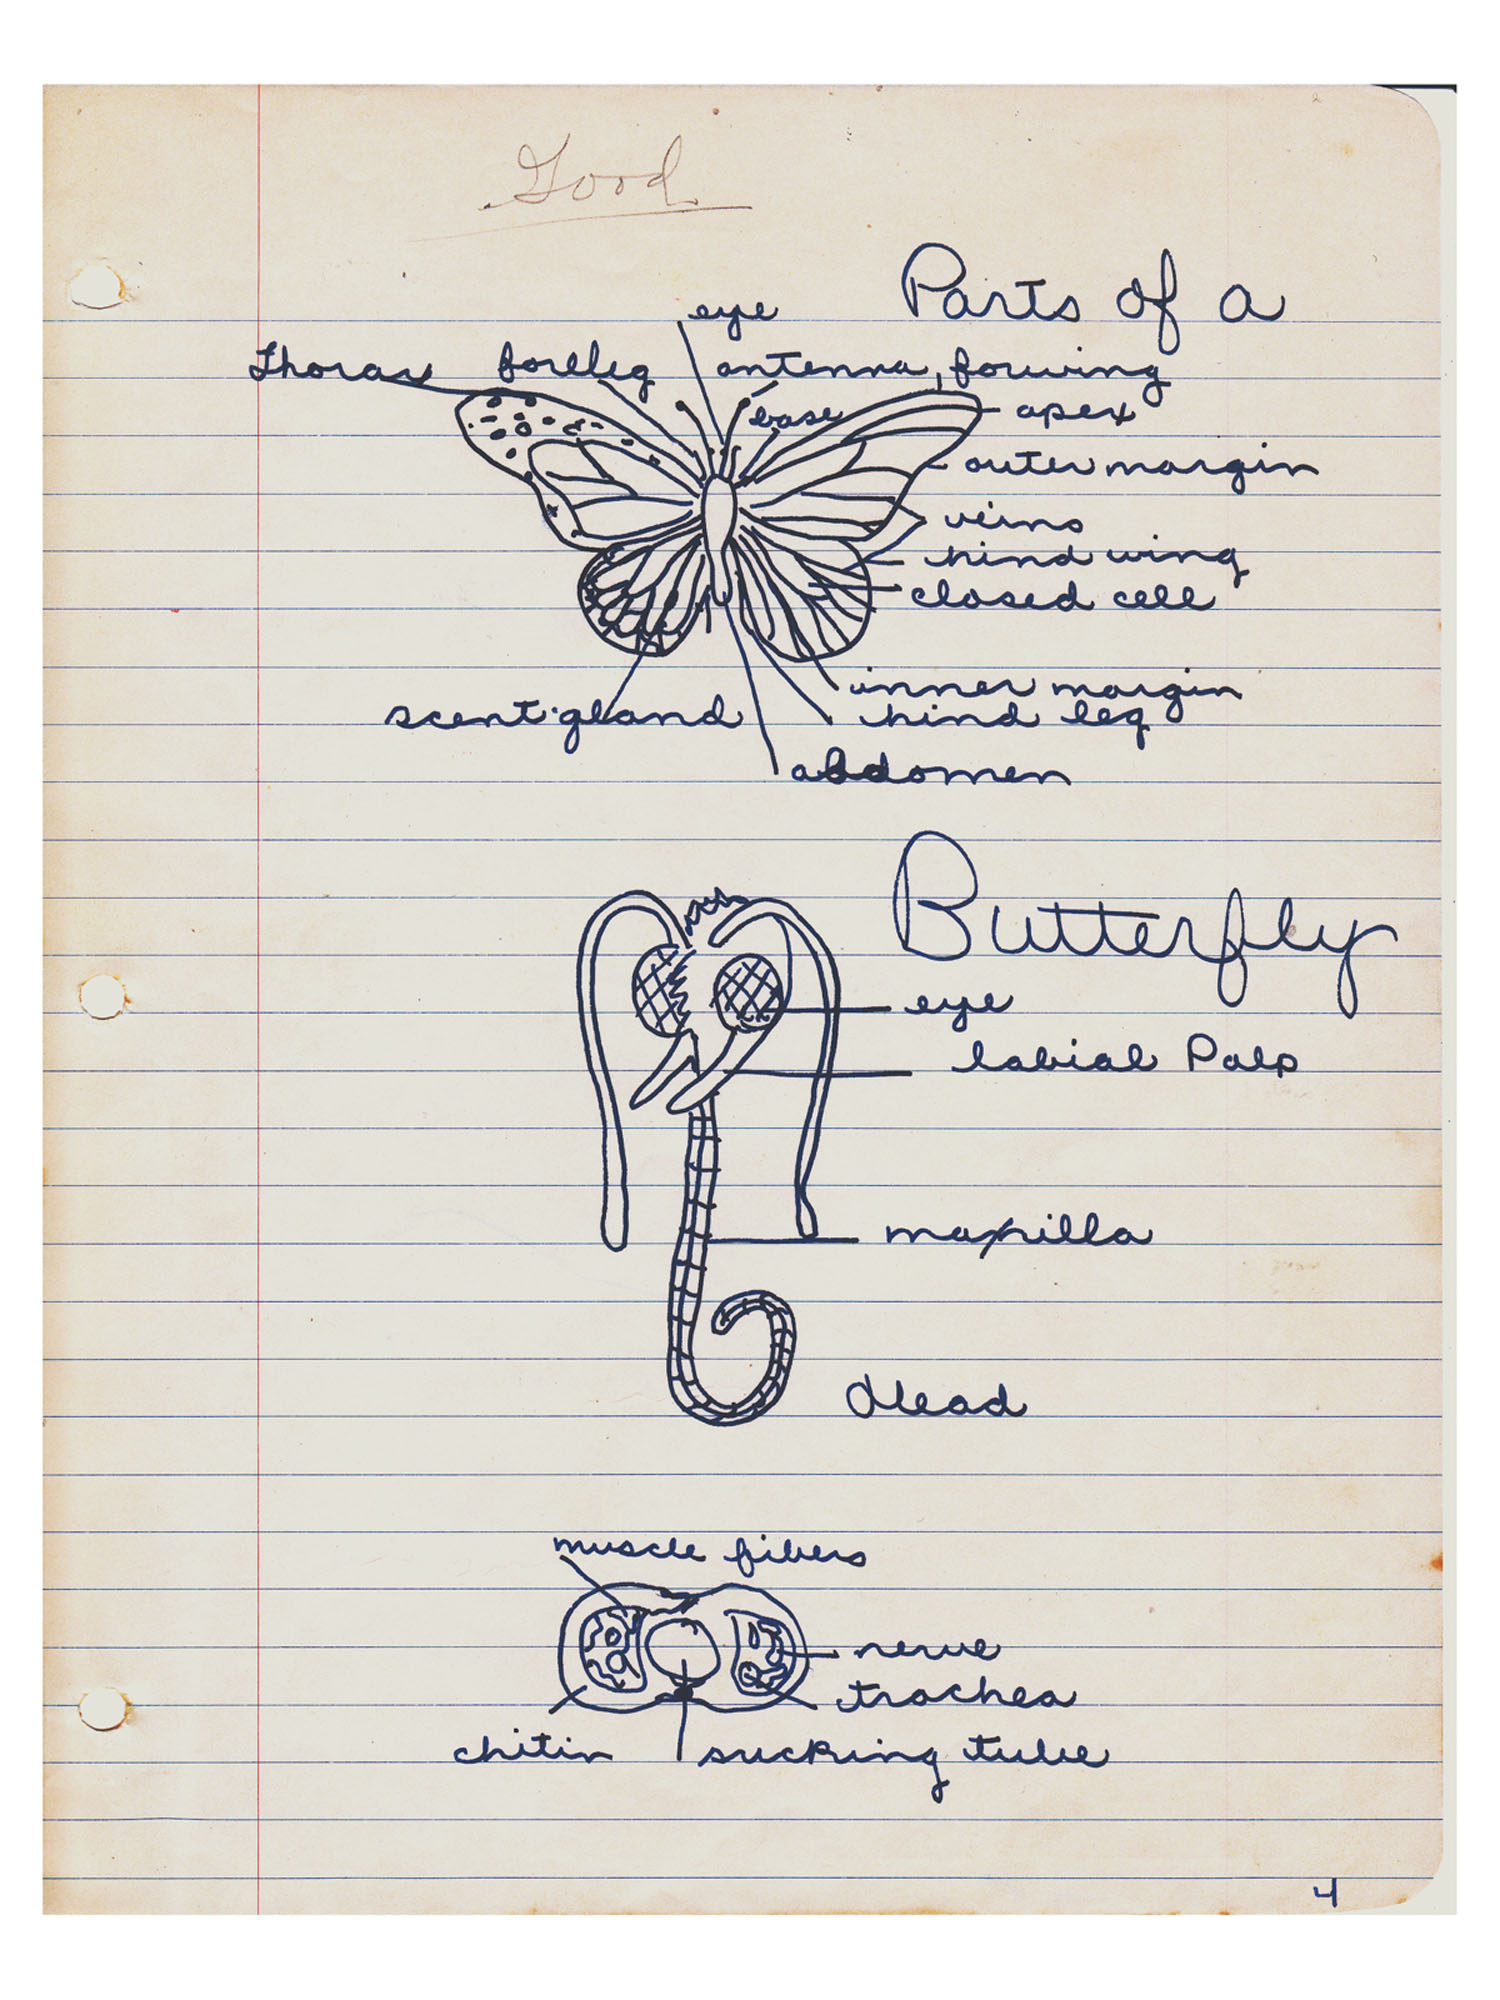 Good
Parts of a
eye
Thorax foreleg antenna, forwing
base apex
outer margin
veins
hind wing
closed cell
inner margin
scent gland hind leg
abdomen
Butterfly
eye
labial Palp
maxilla
Head
muscle fibers
nerve
trachea
chitin sucking tube
4